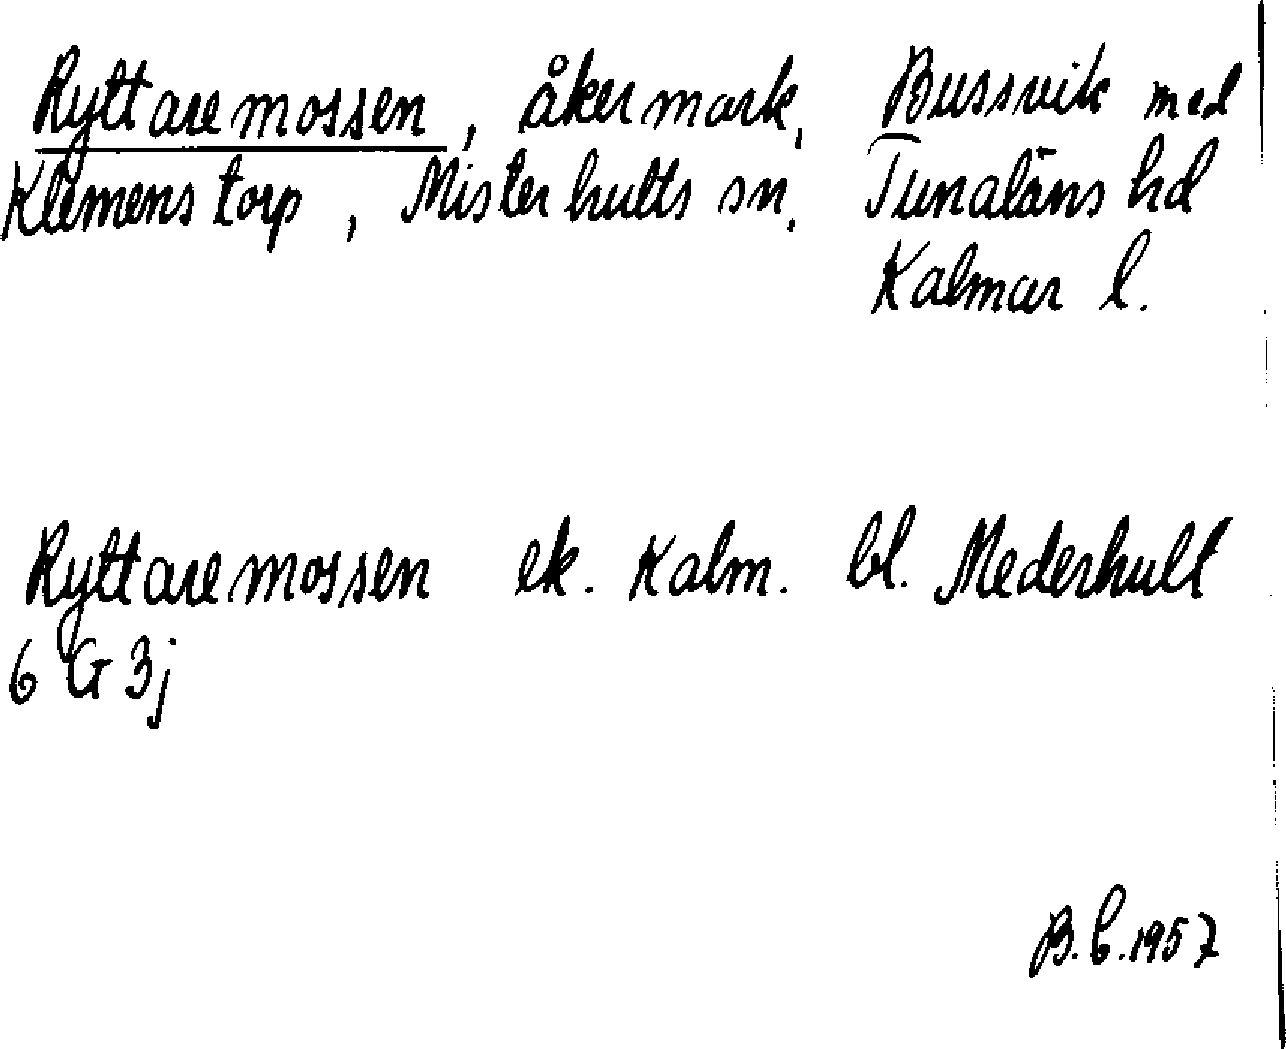 Ryttaremossen, åkermark, Bussvik med
Klemenstorp, Misterhults sn, Tunaläns hd
Kalmar l.
Ryttaremossen ek. Kalm. bl. Mederhult
6 G 3j
B.C. 1957